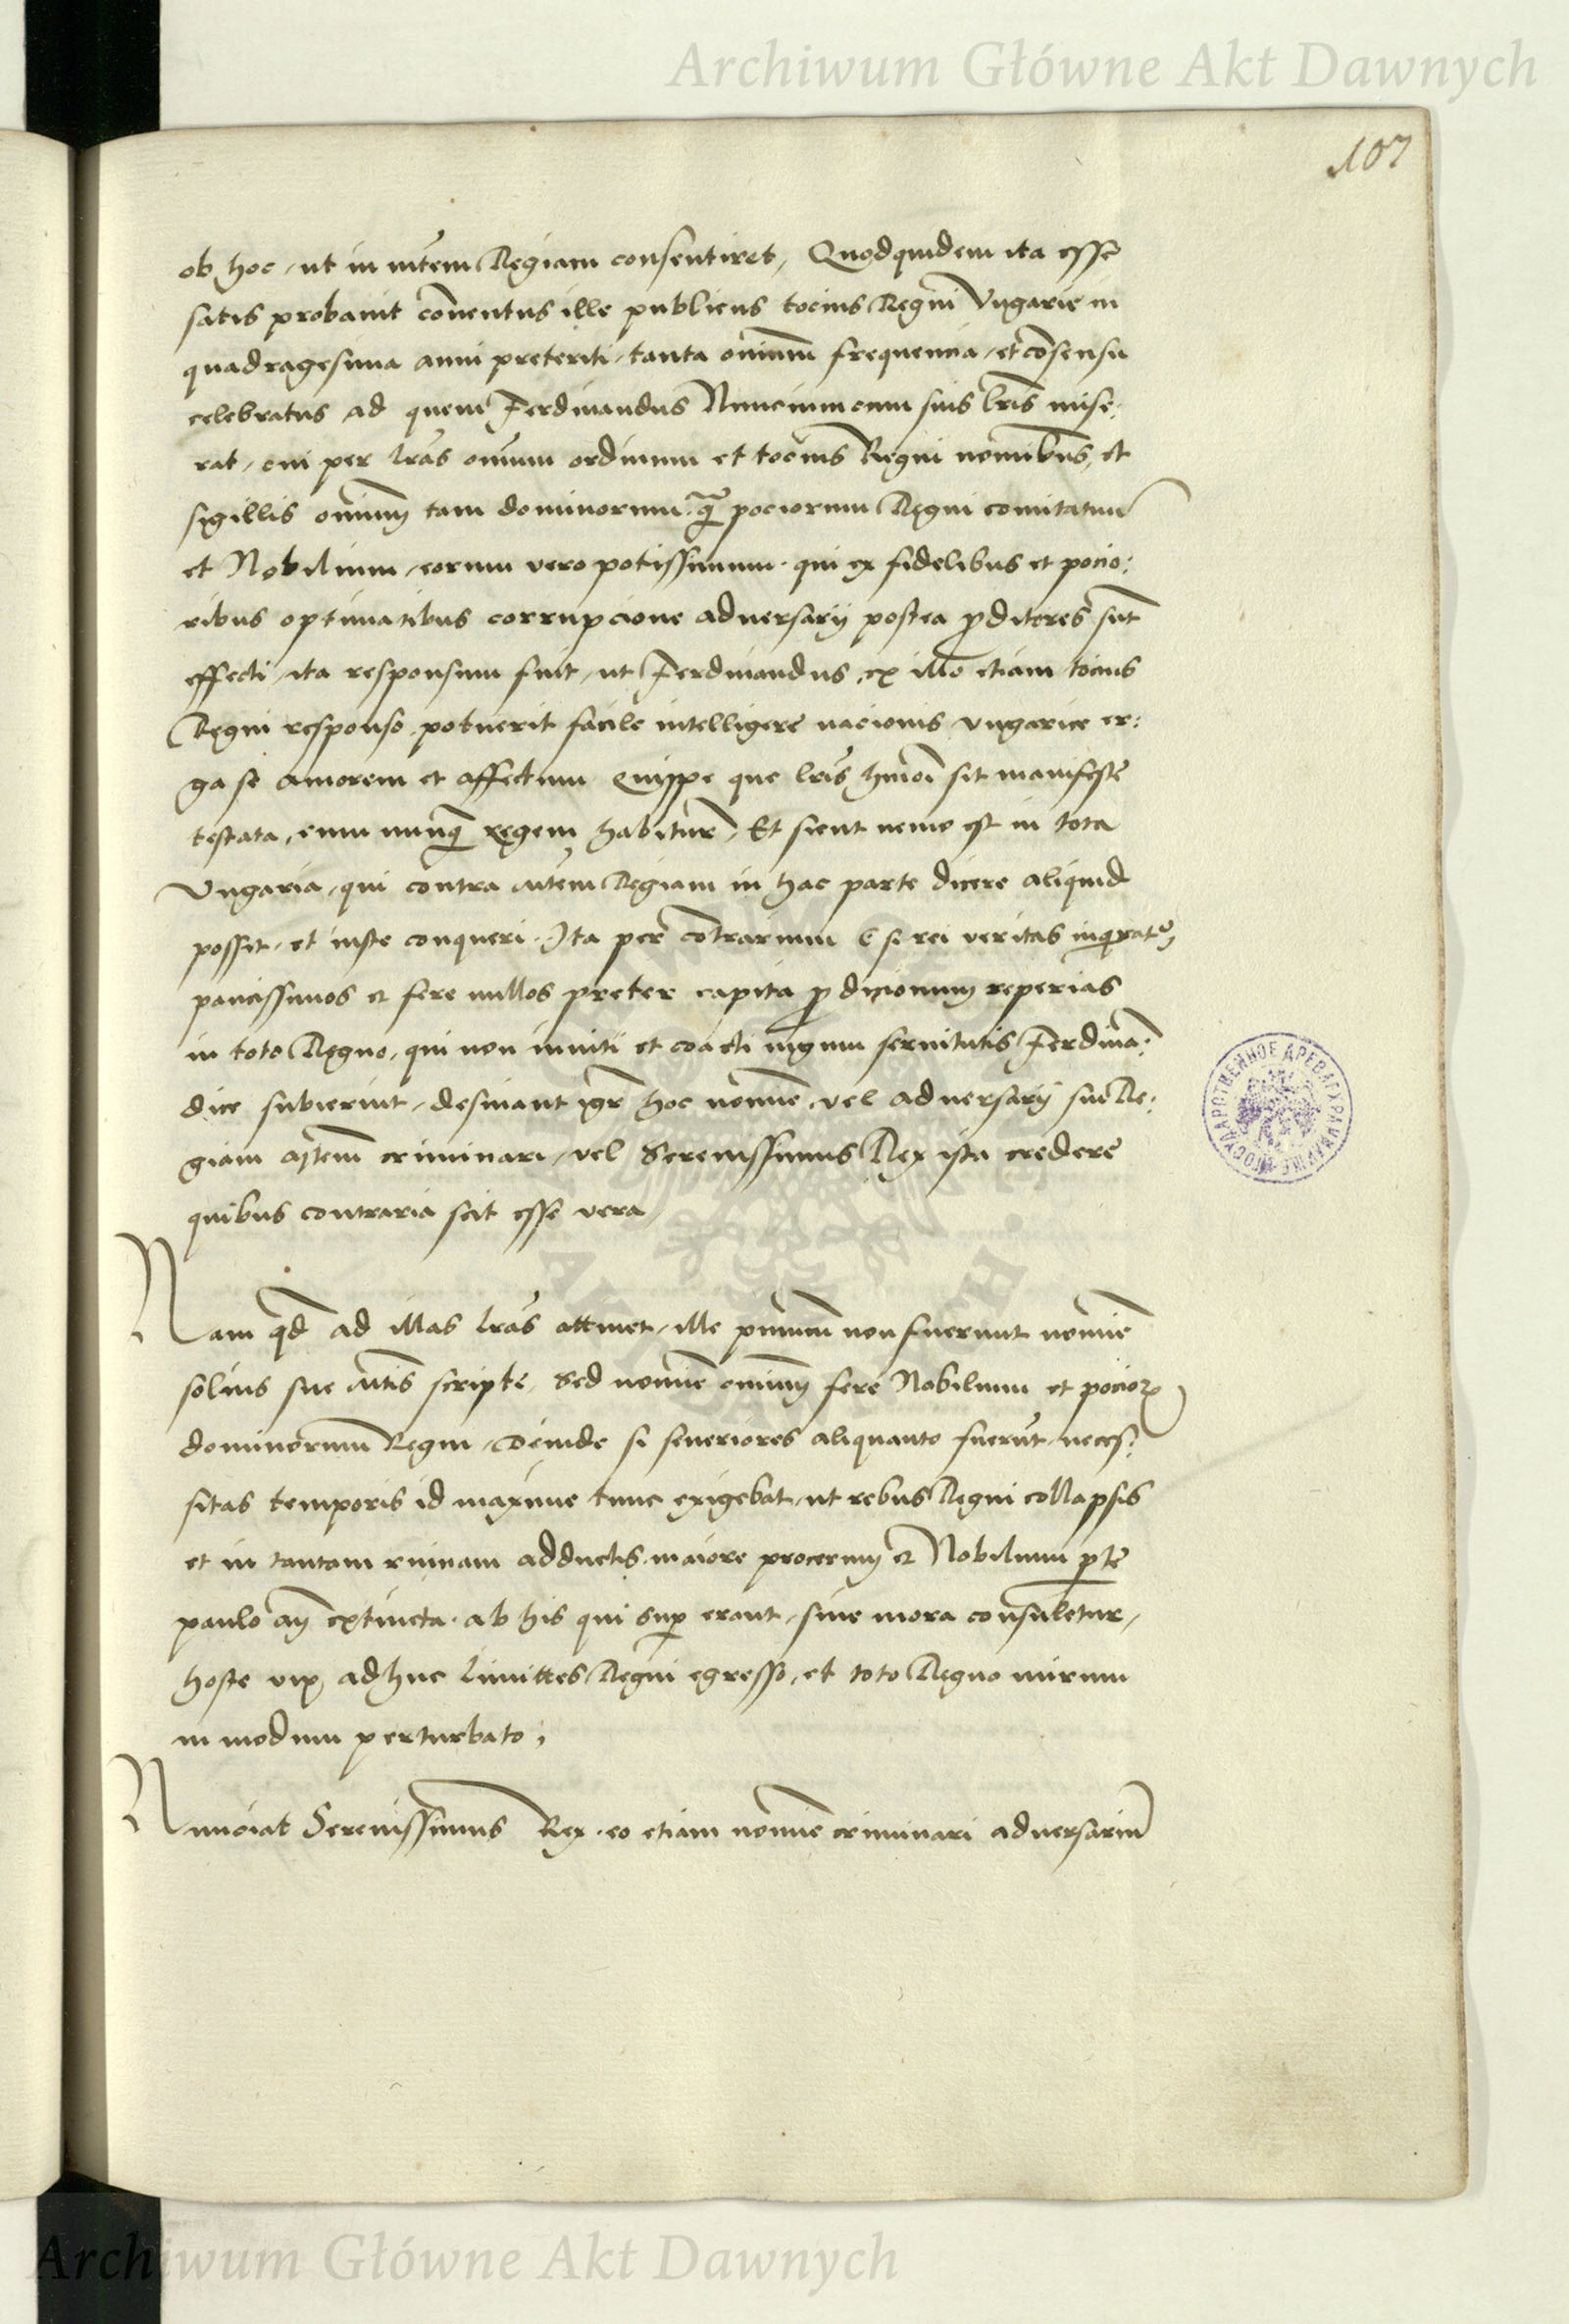 Archiwum Główne Akt Dawnych
107
ob hoc, ut in mtem Regiam consentiret, Quodquidem ita esse
satis probavit conventus ille publicus tocius Regni Vngarie in
quadragesima anni preteriti, tanta omnium frequencia, et consensu
celebratus ad quem Ferdinandus Nuncium cum suis lris mise:
rat, cui per lras omnium ordinum et tocius Regni nominibus, et
sigillis omnium tam dominorum q̃ pociorum Regni comitatuum
et Nobilium, eorum vero potissimum. qui ex fidelibus et pocio:
ribus optimatibus corrupcione adversarij postea proditores sut
effecti, ita responsum fuit, ut Ferdinandus, ex illo etiam tocius
Regni responso, potuerit facile intelligere nacionis Vngarice er:
ga se amorem et affectum Quippe que lris hmoi sit manifeste
testata, eum nunq̃ regem habitur, Et sicut nemo est in tota
Vngaria, qui contra mtem Regiam in hac parte dicere aliquid
possit, et iuste conqueri. Ita per contrarium (si rei veritas inquiratr)
paucissimos et fere nullos preter capita prodicionum reperias
in toto Regno, qui non inviti et coacti iugum servitutis Ferdina:
dice subierint, desinant igr hoc nomine, vel adversarij sua Re:
giam mtem criminari, vel Serenissimus Rex ista credere
quibus contraria scit esse vera
Nam qd ad illas lras attinet, ille primum non fuerunt nomine
solius sue mtis scripte, Sed nomine omnium fere Nobilium et pocior
dominorum Regni, Deinde si severiores aliquanto fuerut, neces:
sitas temporis id maxime tunc exigebat, ut rebus Regni collapsis
et in tantam ruinam adductis. maiore procerum et Nobilium pte
paulo an extincta. ab his qui sup erant, sine mora consuletur,
hoste vix adhuc limittes Regni egresso, et toto Regno mirum
in modum perturbato;
Nunciat Serenissimus Rex. eo etiam nomine criminari adversarium
ГОСУДАРСТВЕННОЕ ДРЕВЛЕХРАНИЛИЩЕ
Archiwum Główne Akt Dawnych